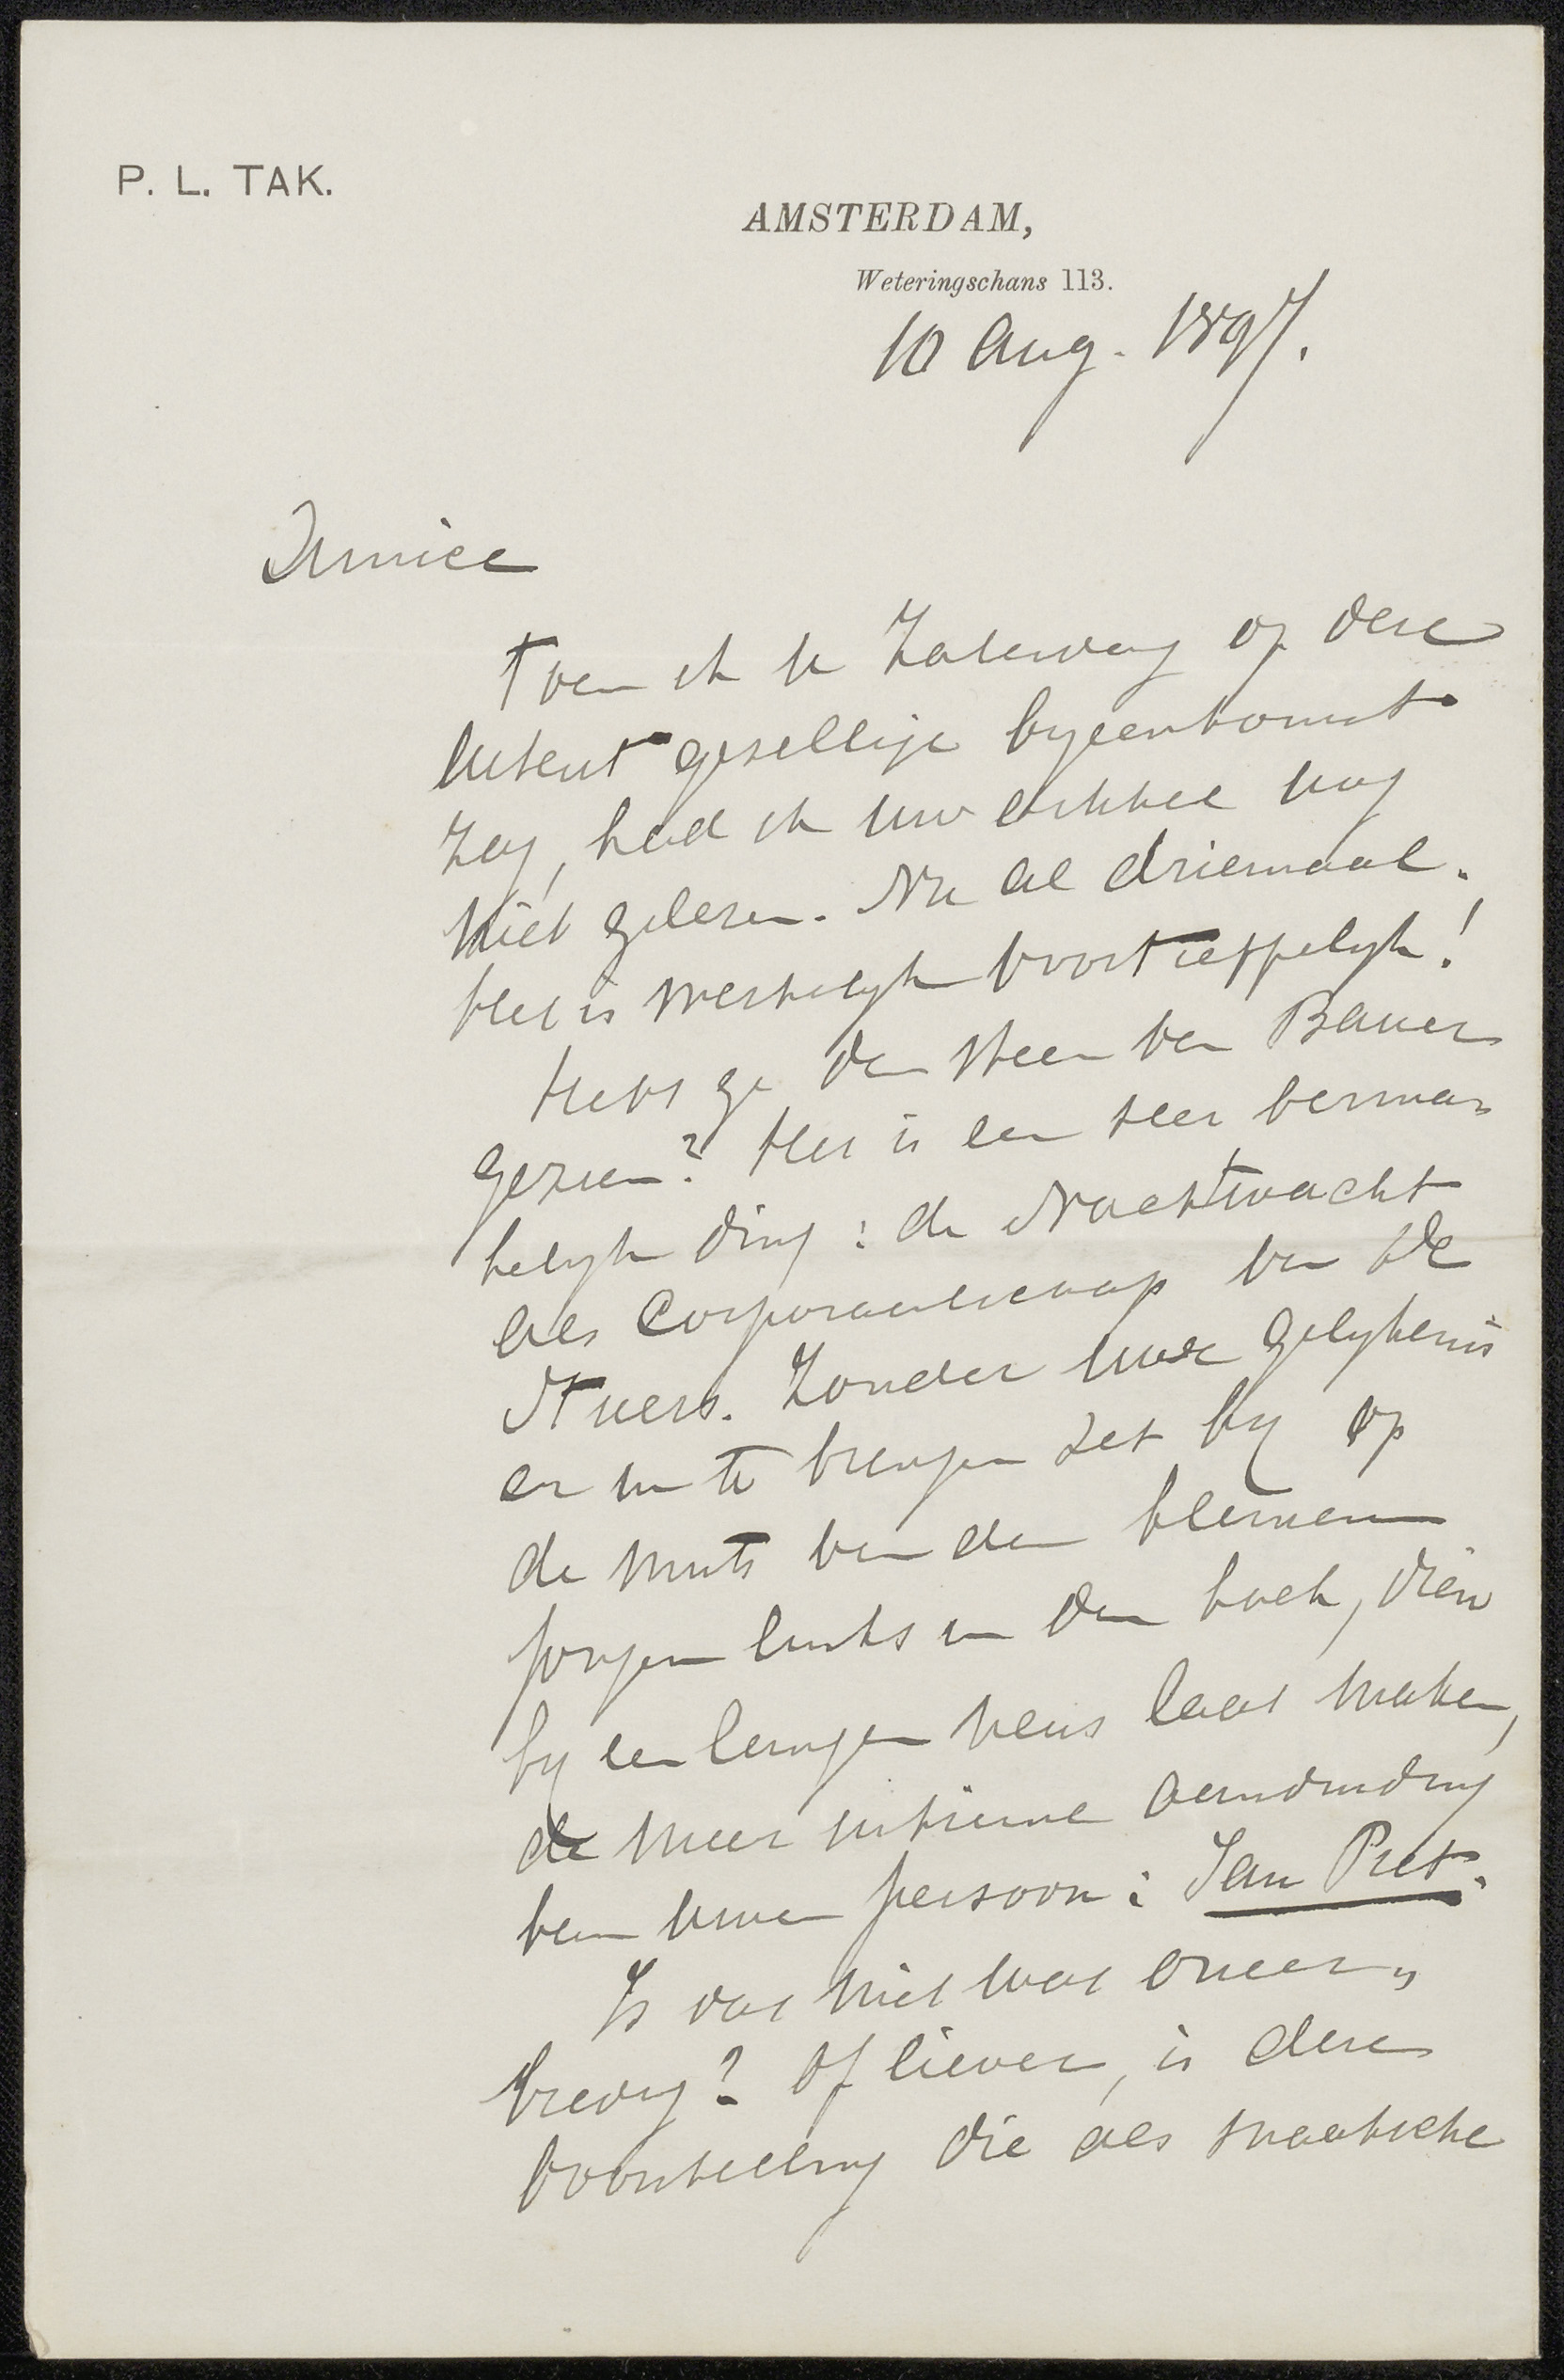 P. L. TAK.
AMSTERDAM,
Weteringschans 113.
10 Aug. 1897.
Amice
Toen ik u Zaterdag op deze
intent gezellige byeenkomst
zag, had ik uw artikel nog
niet gelezen. Nu al driemaal.
Het is werkelyk voortreffelyk!
Hebt ge den steen van Bauer
gezien? Het is een zeer vermaa
kelyk ding: de Nachtwacht
als Corporaalschap van De
Stuers. Zonder uwe gelykenis
er in te brengen zet hy op
de muts van den kleinen
jongen links in den hoek, dien
hy een langen neus laat maken,
de meer intieme aanduiding
van uwen persoon: Jan Piet.
Is dat niet wat oneer„
biedig? Of liever, is deze
voorstelling die als staatsche